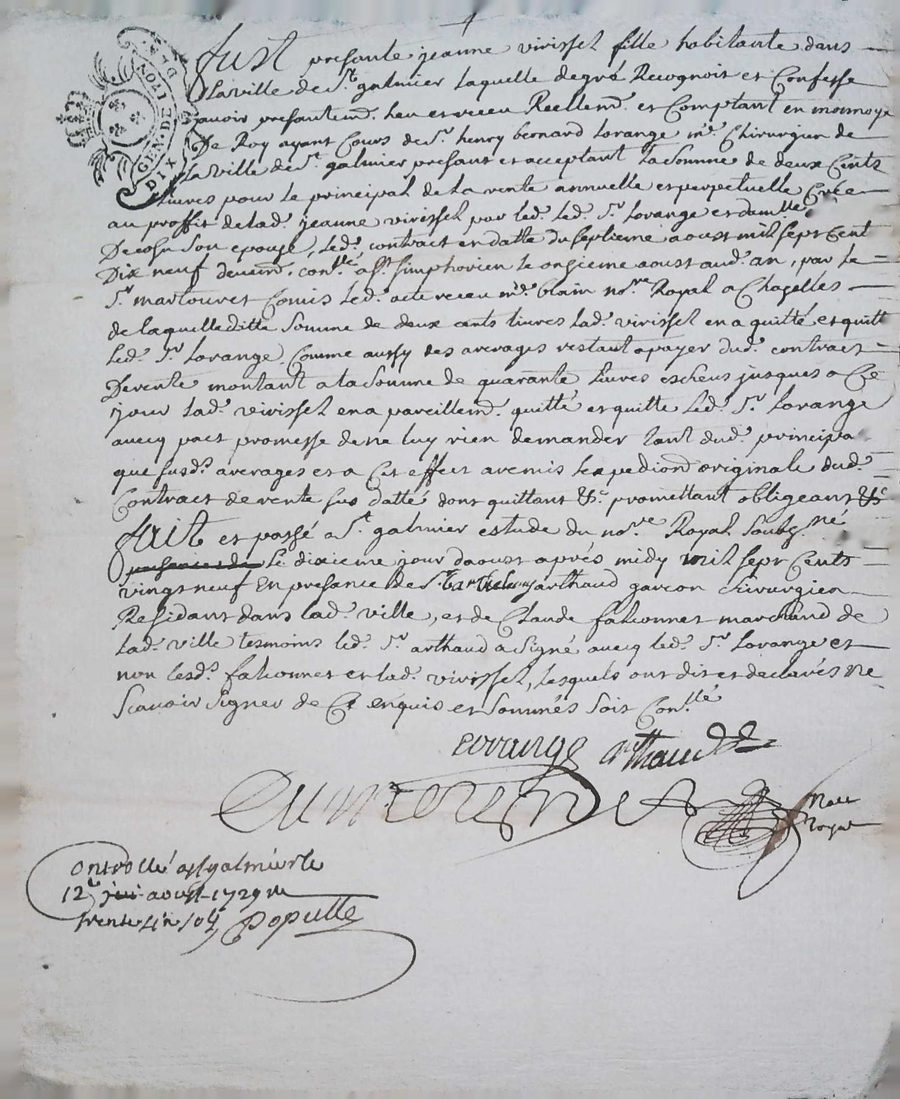 GEN. DE LYON
DIX
fust presente jeanne virissel fille habitante dans
La ville de St. galmier laquelle degré Recognoit et Confesse
avoir presentemt. heu et receu Reellemt. et Comptant en monnoye
De Roy ayant Cours de Sr. henry bernard Lorange me. Chirurgien de
La ville de St. galmier presant et acceptant La somme de deux Cents
livres pour le principal de la rente annuelle et perpetuelle Creé
au proffit de lad. jeanne virissel par led. Sr. Lorange et damlle
son epouse, led. contract en datte du septieme aoust mil sept Cent
Dix neuf con.llé a St. simphorien le onzieme aoust aud. an, par le
Sr. martouret Comis led. acte receu me. blain nore. Royal a Chazelles
de laquelle ditte Somme de deux cents livres lad. virissel en a quitté et quitte
led. Sr. Lorange, Comme aussy des arerages restant a payer dud. contract
De rente montant a la Somme de quarante livres escheus jusques a Ce
jour lad. virissel en a pareillemt. quitté et quitte led. Sr. Lorange
avecq pact promesse de ne luy rien demander tant dud. principal
que susd. arerages et a Cet effect a remis l'expedion originale dud.
Contract de rente sus datté dont quittant &c. promettant obligeant &c.
fait et passé a St. galmier estude du nore. Royal Soubzné
le dixieme jour daoust apres midy mil sept Cents
vingt neuf En presance de Sr. Barthelemy arthaud garcon chirurgien
Residant dans lad. ville, et de Claude falconnet marchand de
lad. ville tesmoins led. Sr. arthaud a signé avecq led. Sr. Lorange et
non lesd. falconnet et lad. virissel, lesquels ont dit et declarés ne
Scavoir Signer de Ce enquis et Sommés Soit Con.llé
Lorange arthaud
Notre
Royal
Controllé a St galmier le
12e. aoust 1729 re
trente
Populle